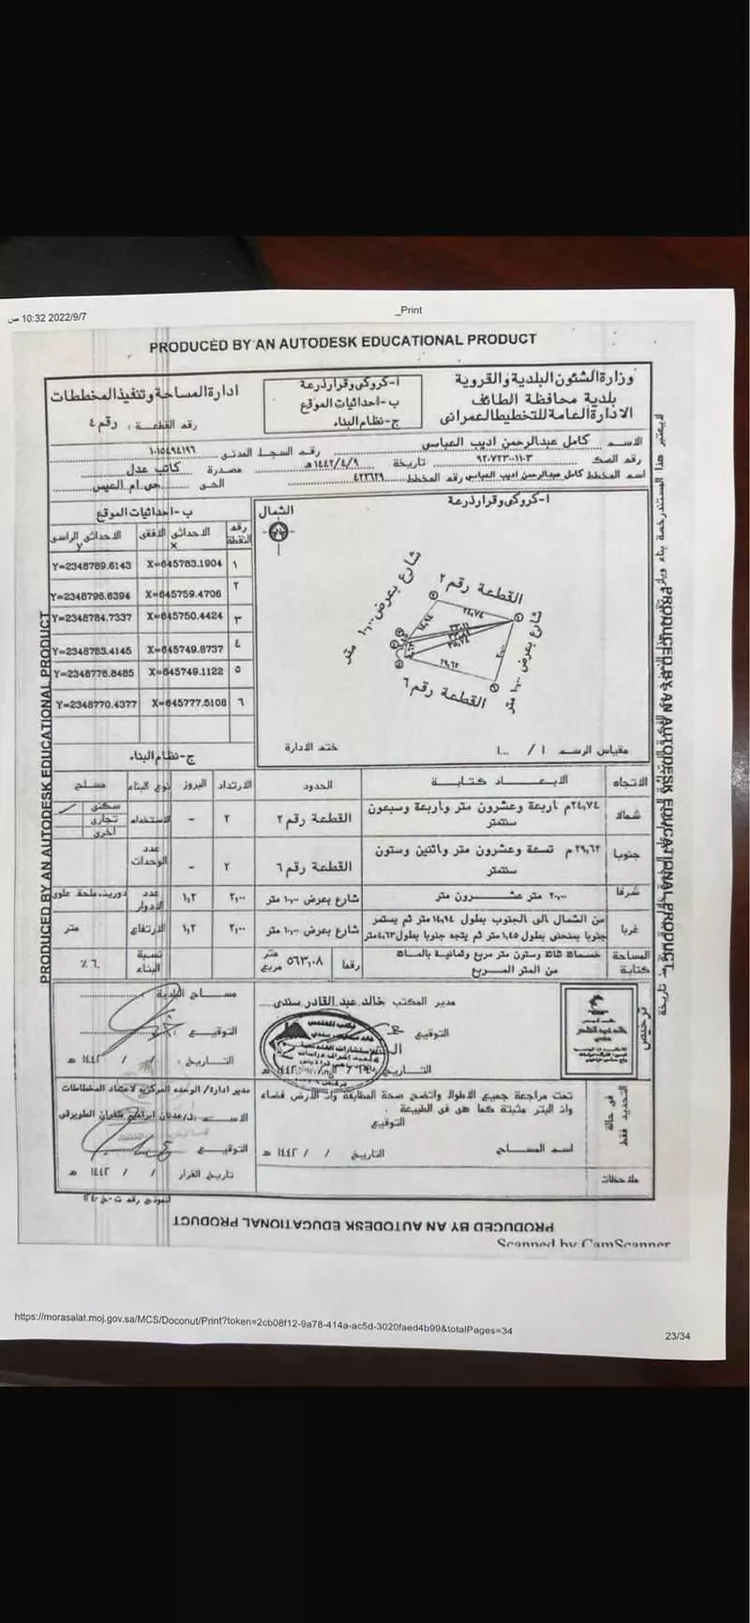 10:32 2022/9/7 ص
_Print
PRODUCED BY AN AUTODESK EDUCATIONAL PRODUCT
وزارة الشئون البلدية والقروية
بلدية محافظة الطائف
الادارة العامة للتخطيط العمرانى
ا-كروكى وقرار ذرعة
ب-احداثيات الموقع
ج-نظام البناء
ادارة المساحة وتنفيذ المخططات
رقم القطعـــة : رقم ٤
الاســم كامل عبدالرحمن اديب العباسى رقم السجل المدنى ١٠١٥٤٩٤١٩٦
رقم الصك ٩٢٠٧٢٣٠٠١١٠٣ تاريخة ١٤٤٢/٤/٩هـ مصدرة كاتب عدل
اسم المخطط كامل عبدالرحمن اديب العباسى رقم المخطط ٤٢٣٦٢٩ الحى حى ام العيس
ا-كروكى وقرار ذرعة
الشمال
شارع بعرض ١٠,٠٠ متر
القطعة رقم ٢
٢٤,٧٤
١٤,٩٤
شارع بعرض ١٠,٠٠ متر
٢٩,٦٢
القطعة رقم ٦
مقياس الرسم ١ / ١٠٠٠
ختم الادارة
ب-احداثيات الموقع
رقم النقطة الاحداثى الافقى x الاحداثى الراسى y
١ X=645783.1904 Y=2348789.6143
٢ X=645759.4706 Y=2348796.6394
٣ X=645750.4424 Y=2348784.7337
٤ X=645749.8737 Y=2348783.4145
٥ X=645749.1122 Y=2348778.8485
٦ X=645777.5108 Y=2348770.4377
ج-نظام البناء
الاتجاه الابعـــاد كتابـــة الحدود الارتداد البروز نوع البناء مسلح
شمالا ٢٤,٧٤م اربعة وعشرون متر واربعة وسبعون سنتمتر القطعة رقم ٢ ٢ - الاستخدام سكنى تجارى اخرى
جنوبا ٢٩,٦٢م تسعة وعشرون متر واثنين وستون سنتمتر القطعة رقم ٦ ٢ - عدد الوحدات
شرقا ٢٠,٠٠ متر عشـــرون متر شارع بعرض ١٠,٠٠ متر ٢,٠٠ ١,٢ عدد الادوار
غربا من الشمال الى الجنوب بطول ١٤,٩٤ متر ثم يستمر جنوبا بمنحنى بطول ١,٤٥ متر ثم يتجه جنوبا بطول ٤,٦٣متر شارع بعرض ١٠,٠٠ متر ٢,٠٠ ١,٢ الارتفاع متر
المساحة كتابة من المتر المـربع رقما ٥٦٣,٠٨ متر مربع نسبة البناء ٦٠٪
ترخيص
مدير المكتب خالد عبد القادر سندى
التوقيع
التـــاريخ
مســـاح البلدية
التوقيـــع :
التـاريخ : / / ١٤٤٢ هـ
التحديد فى حالة فقط
تمت مراجعة جميع الاطوال واتضح صحة المطابقة وان الارض فضاء
وان البتر مثبتة كما هى فى الطبيعة .
التوقيع
اسـم المســاح التاريخ / / ١٤٤٢ هـ
مدير ادارة/ الوحدة المركزية لاعتماد المخططات
التوقيـــع
تاريخ القرار / / ١٤٤٢ هـ
ملاحظات
PRODUCED BY AN AUTODESK EDUCATIONAL PRODUCT
PRODUCED BY AN AUTODESK EDUCATIONAL PRODUCT
PRODUCED BY AN AUTODESK EDUCATIONAL PRODUCT
Scanned by CamScanner
https://morasalat.moj.gov.sa/MCS/Doconut/Print?token=2cb08f12-9a78-414a-ac5d-3020faed4b99&totalPages=34
23/34